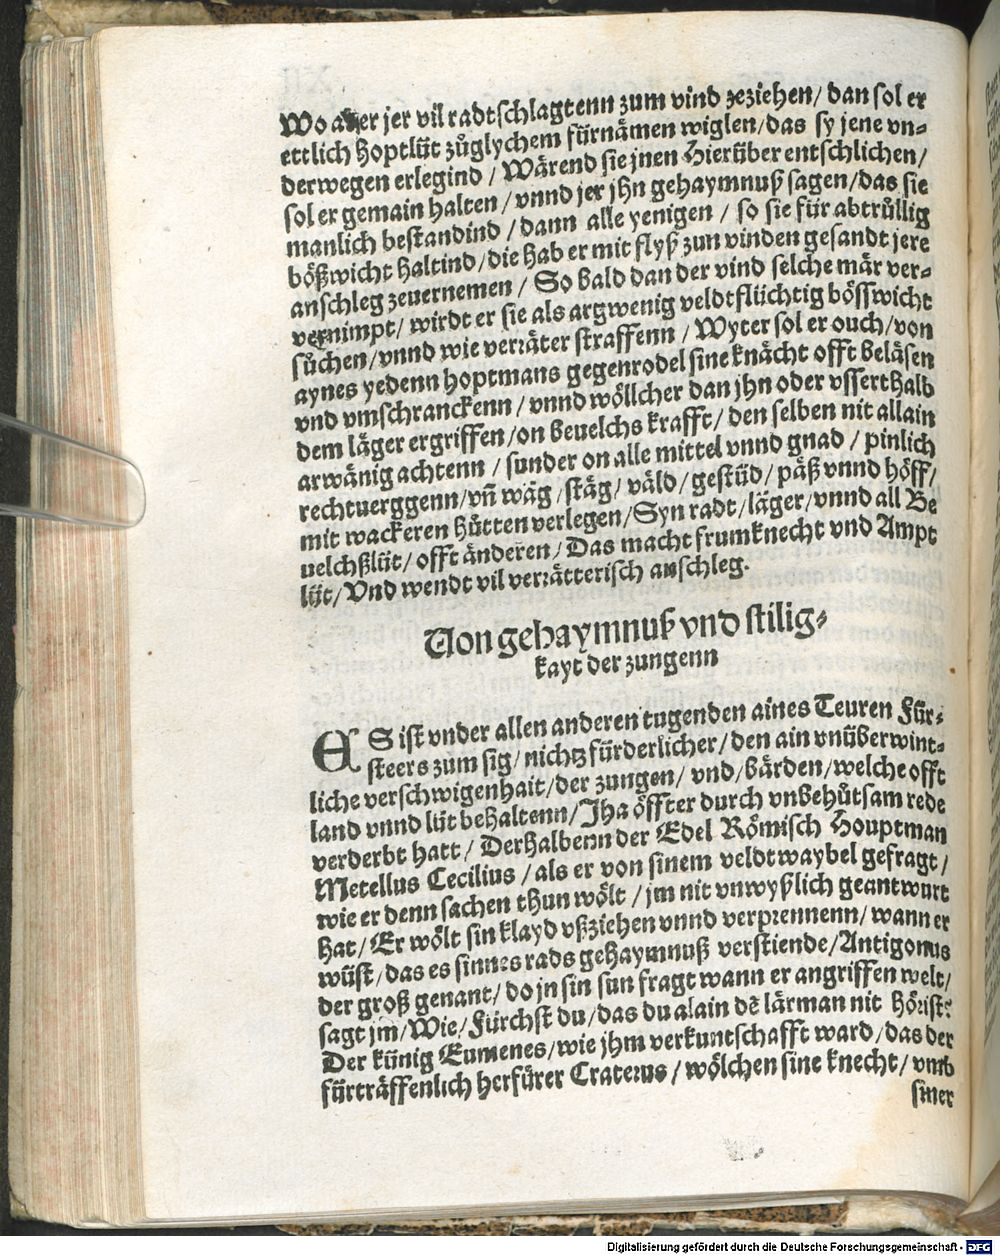 Wo aber jer vil radtschlagtenn zum vind zeziehen/ dan sol er
ettlich hoptlüt zůglychem fürnämen wiglen/das sy jene vn⸗
derwegen erlegind / Wärend sie jnen Hierüber entschlichen/
sol er gemain halten / vnnd jer jhn gehaymnuß sagen/das sie
manlich bestandind /dann alle yenigen / so sie für abtrůllig
bößwicht haltind/die hab er mit flyß zun vinden gesandt jere
anschleg zeuernemen / So bald dan der vind selche mär ver⸗
vernimpt/ wirdt er sie als argwenig veldtflüchtig bösswicht
sůchen/vnnd wie verräter straffenn / Wyter sol er ouch/von
aynes yedenn hoptmans gegenrodel sine knächt offt beläsen
vnd vmschranckenn / vnnd wöllcher dan jhn oder vsserthalb
dem läger ergriffen/on beuelchs krafft/ den selben nit allain
arwänig achtenn / sunder on alle mittel vnnd gnad / pinlich
rechtuerggenn/vñ wäg/stäg/ väld/ gestüd/ päß vnnd höff/
mit wackeren hůtten verlegen/Syn radt/läger/vnnd all Be
uelchßlüt/ offt änderen/Das macht frumknecht vnd Ampt
lüt/Vnd wendt vil verrätterisch anschleg.
Von gehaymnuß vnd stilig⸗
kayt der zungenn
ES ist vnder allen anderen tugenden aines Teuren Für⸗
steers zum sig/ nichtz fürderlicher/den ain vnüberwint⸗
liche verschwigenhait/der zungen/ vnd/bärden/welche offt
land vnnd lüt behaltenn/Jha öffter durch vnbehůtsam rede
verderbt hatt/ Derhalbenn der Edel Römisch Houptman
Metellus Cecilius /als er von sinem veldtwaybel gefragt/
wie er denn sachen thun wölt / jm nit vnwyßlich geantwurt
hat/Er wölt sin klayd vßziehen vnnd verprennenn/wann er
wüst/das es sinnes rads gehaymnuß verstiende/Antigonus
der groß genant/ do jn sin sun fragt wann er angriffen welt/
sagt jm/Wie/Fürchst du/das du alain dẽ lärman nit hörist?
Der künig Eumenes/wie jhm verkuntschafft ward/das der
fürträffenlich herfürer Craterus / wölchen sine knecht/ vmb
siner
Digitalisierung gefördert durch die Deutsche Forschungsgemeinschaft - DFG